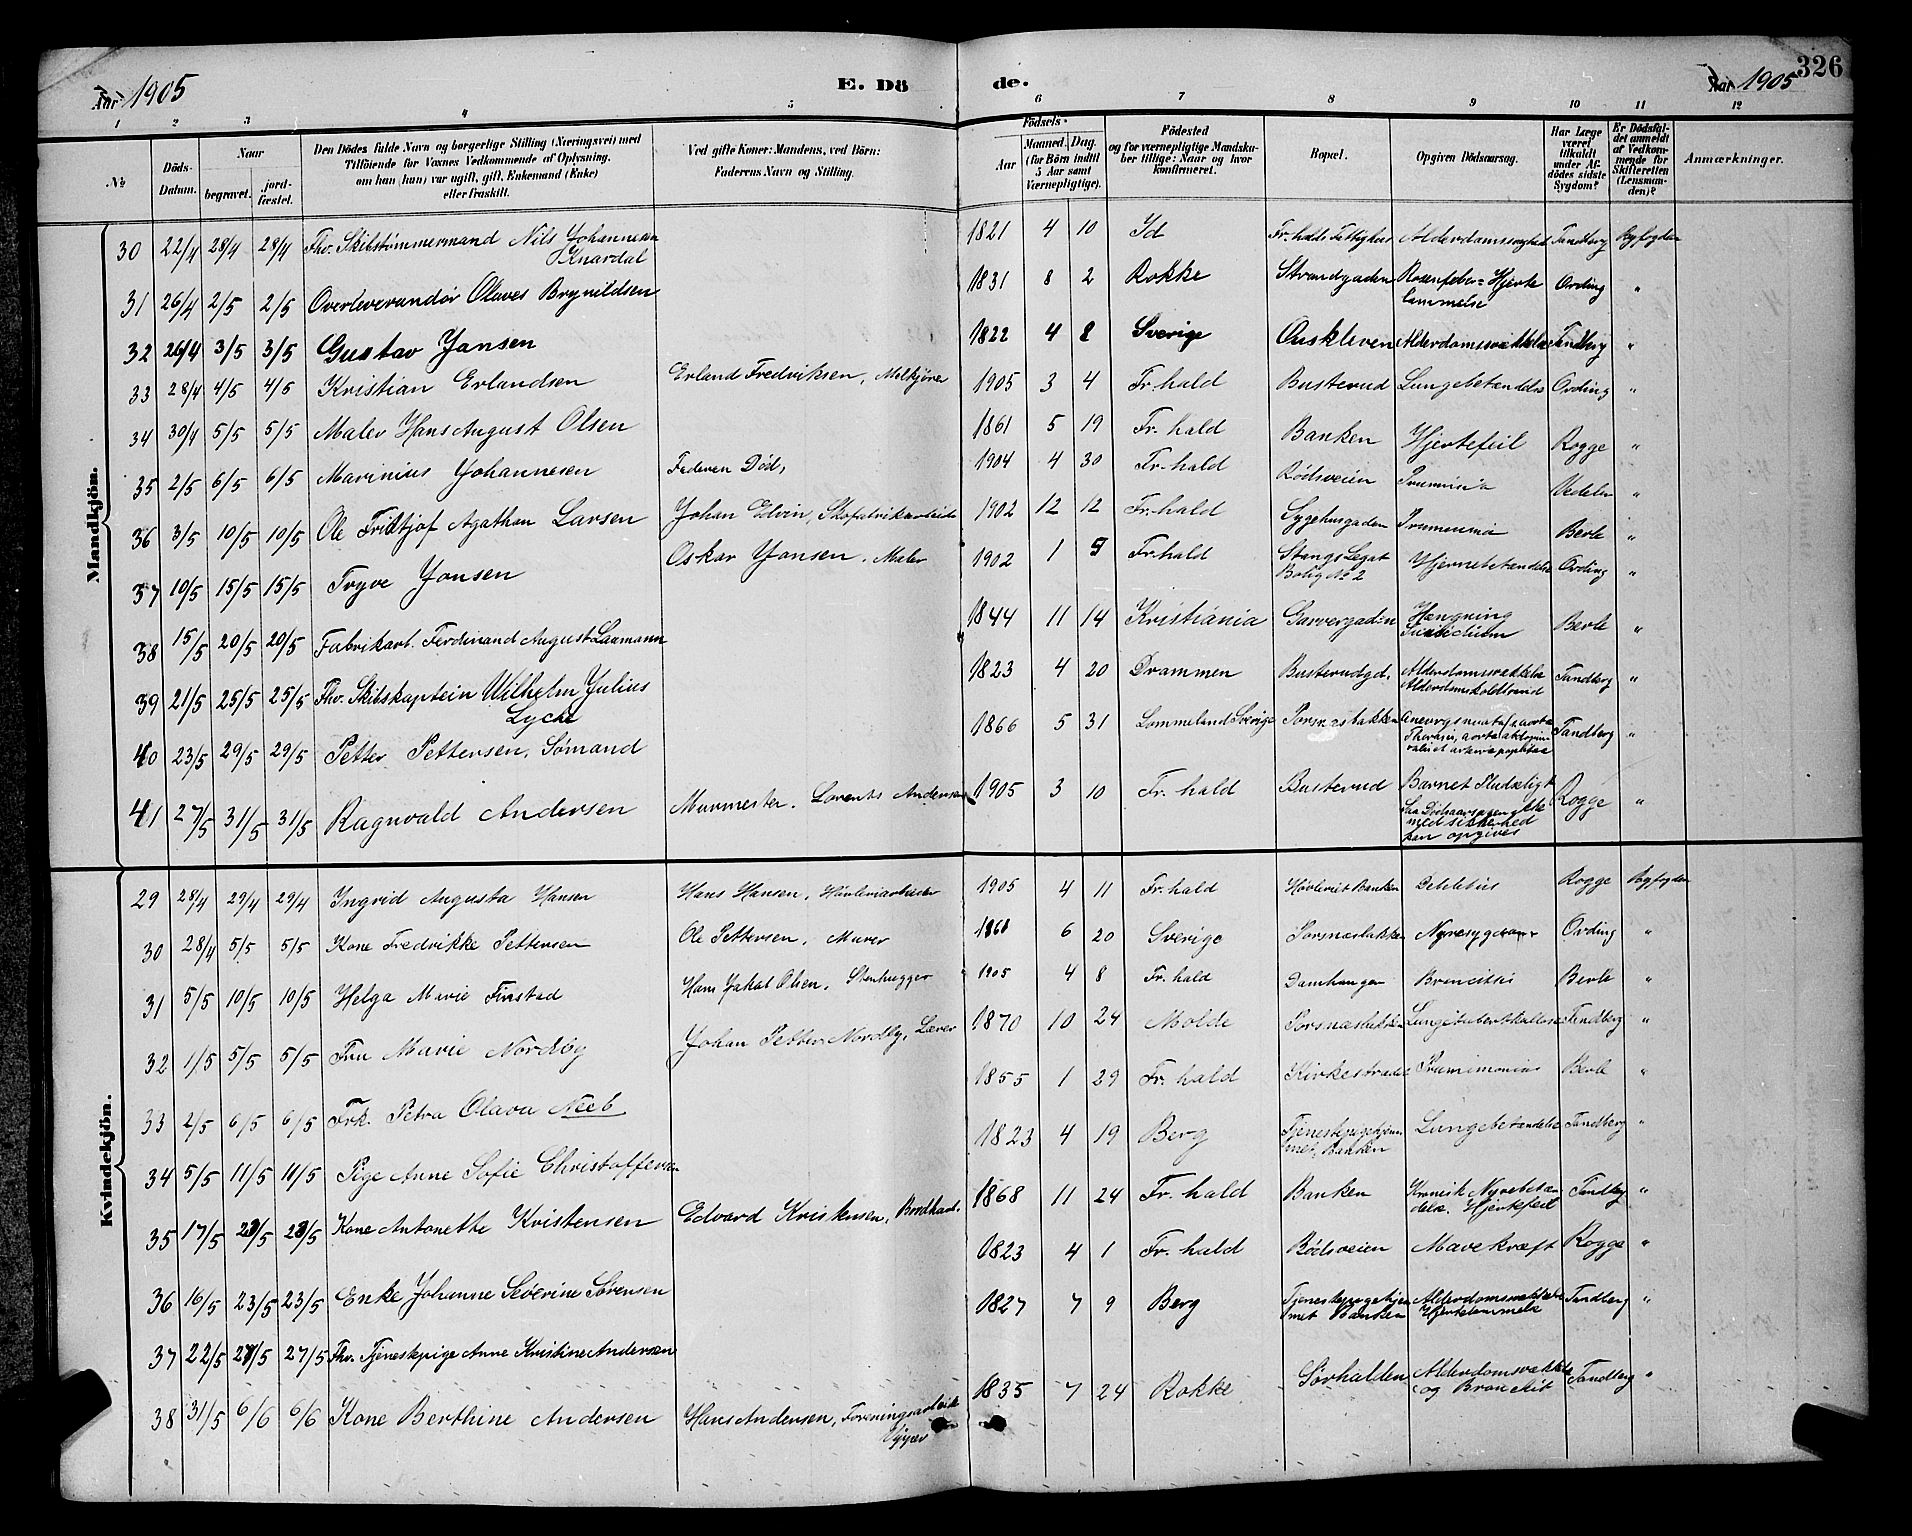 Aar 1905
E. Dö
de.
Aar 1905
326
1 2 3 4 5 6 7 8 9 10 11 12
№
Döds-Datum.
Naar
begravet.
jordfæstet.
Den Dödes fulde Navn og borgerlige Stilling (Næringsvei) med
Tilföiende for Voxnes Vedkommende af Oplysning,
om han (hun) var ugift, gift, Enkemand (Enke)
eller fraskilt.
Ved gifte Koner: Mandens, ved Börn:
Faderens Navn og Stilling.
Födsels-
Aar
Maaned. Dag.
(for Börn indtil
5 Aar samt
Værnepligtige).
Födested
og for værnepligtige Mandskaber tillige: Naar og hvor
konfirmeret.
Bopæl.
Opgiven Dödsaarsag.
Har Læge været tilkaldt under Afdödes sidste Sygdom?
Er Dödsfaldet anmeldt af Vedkommende for Skifteretten (Lensmanden)?
Anmærkninger.
Mandkjön.
30 22/4 28/4 28/4 Fhv. Skibstømmermand Nils Johannesen Knardal 1821 4 10 Id Fr.halds Fattighus Alderdomssvaghed Tandberg Byfogden
31 26/4 2/5 2/5 Overleverandør Olaves Brynildsen 1831 8 2 Rokke Strandgaden Rosenfeber = Hjerte lammelse Ording "
32 26/4 3/5 3/5 Gustav Jansen 1822 4 8 Sverige Ouskleven Tandberg "
33 28/4 4/5 4/5 Kristian Erlandsen Erland Fredriksen, 1905 3 4 Fr.hald Busterud Lungebetændelse Ording "
34 30/4 5/5 5/5 Maler Hans August Olsen 1861 5 19 Fr.hald Banken Hjertefeil Rogge "
35 2/5 6/5 6/5 Marinius Johannesen Faderen Død, 1904 4 30 Fr.hald Rødsveien Vedeler "
36 3/5 10/5 10/5 Ole Fridtjof Agathon Larsen Johan Edvin, Skofabrikarbeide 1902 12 12 Fr.hald Sygehusgaden Berle "
37 10/5 15/5 15/5 Trygve Jonsen Oskar Jansen, Maler 1902 1 Fr.hald Stangs Legat Bolig № 2 Hjernebetændelse Ording "
38 15/5 20/5 20/5 Fabrikarb. Ferdinand August Laamann 1844 11 14 Kristiania Garvergaden Hængning Berle "
39 21/5 25/5 25/5 Fhv. Skibskaptein Wilhelm Julius Lyche 1823 4 20 Drammen Busterudgd. Alderdomskoldbrand Tandberg "
40 23/5 29/5 29/5 Petter Pettersen, Sømand 1866 5 31 Lommeland Sverige Porsnæsbakken Tandberg "
41 27/5 31/5 31/5 Ragnvald Andersen Murmester. Lorents Andersen 1905 3 10 Fr.hald Busterud Barnet Pludseligt saa Dødsaarsagen ikke med sikkerhed kan opgives Rogge "
Kvindekjön.
29 28/4 29/4 29/4 Ingrid Augusta Hansen Hans Hansen, Høvleriarbeider 1905 4 11 Fr.hald Høvleriet Banken Rogge Byfogden
30 28/4 5/5 5/5 Kone Fredrikke Pettersen Ole Pettersen, Murer 6 20 Sverige Porsnæsbakken Nyresygdom Ording "
31 5/5 10/5 10/5 Helga Marie Finstad Hans Jakob Olsen, Stenhugger 1905 4 8 Fr.hald Damhaugen Berle "
32 1/5 5/5 5/5 Fru Marie Nordby Johan Petter Nordby, Lærer 1870 10 24 Molde Tandberg "
33 2/5 6/5 6/5 Frk. Petra Olava Neeb 1855 1 29 Fr.hald Kirkestrædet Berle "
34 5/5 11/5 11/5 Pige Anne Sofie Christoffersen 1823 4 19 Berg Tjenestepigehjemmet, Banken Lungebetændelse Tandberg "
35 17/5 23/5 23/5 Kone Antonette Kristensen Edvard Kristensen, 1868 11 24 Fr.hald Banken Kronisk Nyrebetændelse Hjertefeil Tandberg "
36 16/5 23/5 23/5 Enke Johanne Severine Sørensen 1823 4 1 Fr.hald Rødsveien Mavekræft Rogge "
37 22/5 27/5 27/5 Fhv. Tjenestepige Anne Kristine Andersen 1827 7 9 Berg Tjenestepigehjemmet Banken Hjertelammelse Tandberg "
38 31/5 6/6 6/6 Kone Berthine Andersen Hans Andersen, 1835 7 24 Rokke Sørhalden Alderdomssvækkelse og Bronchit Tandberg "